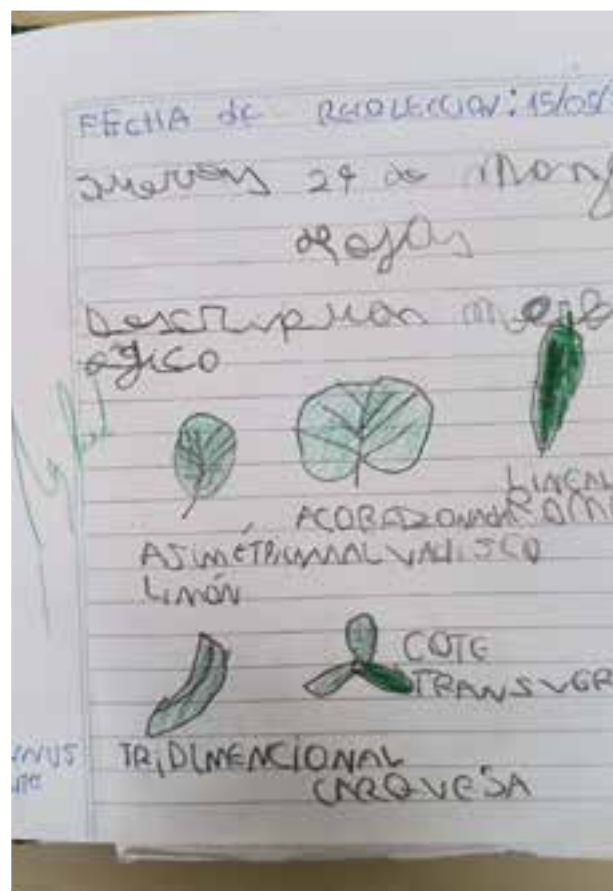 FECHA de RECOLECCION: 15/05/
29 de
Hojas
Descripcion
ógico
LINEAL
ACORAZONADA ROM
ASIMÉTRICA MALVAVISCO
LIMÓN
COTE
TRANSVER
TRIDIMENCIONAL
CARQUESA